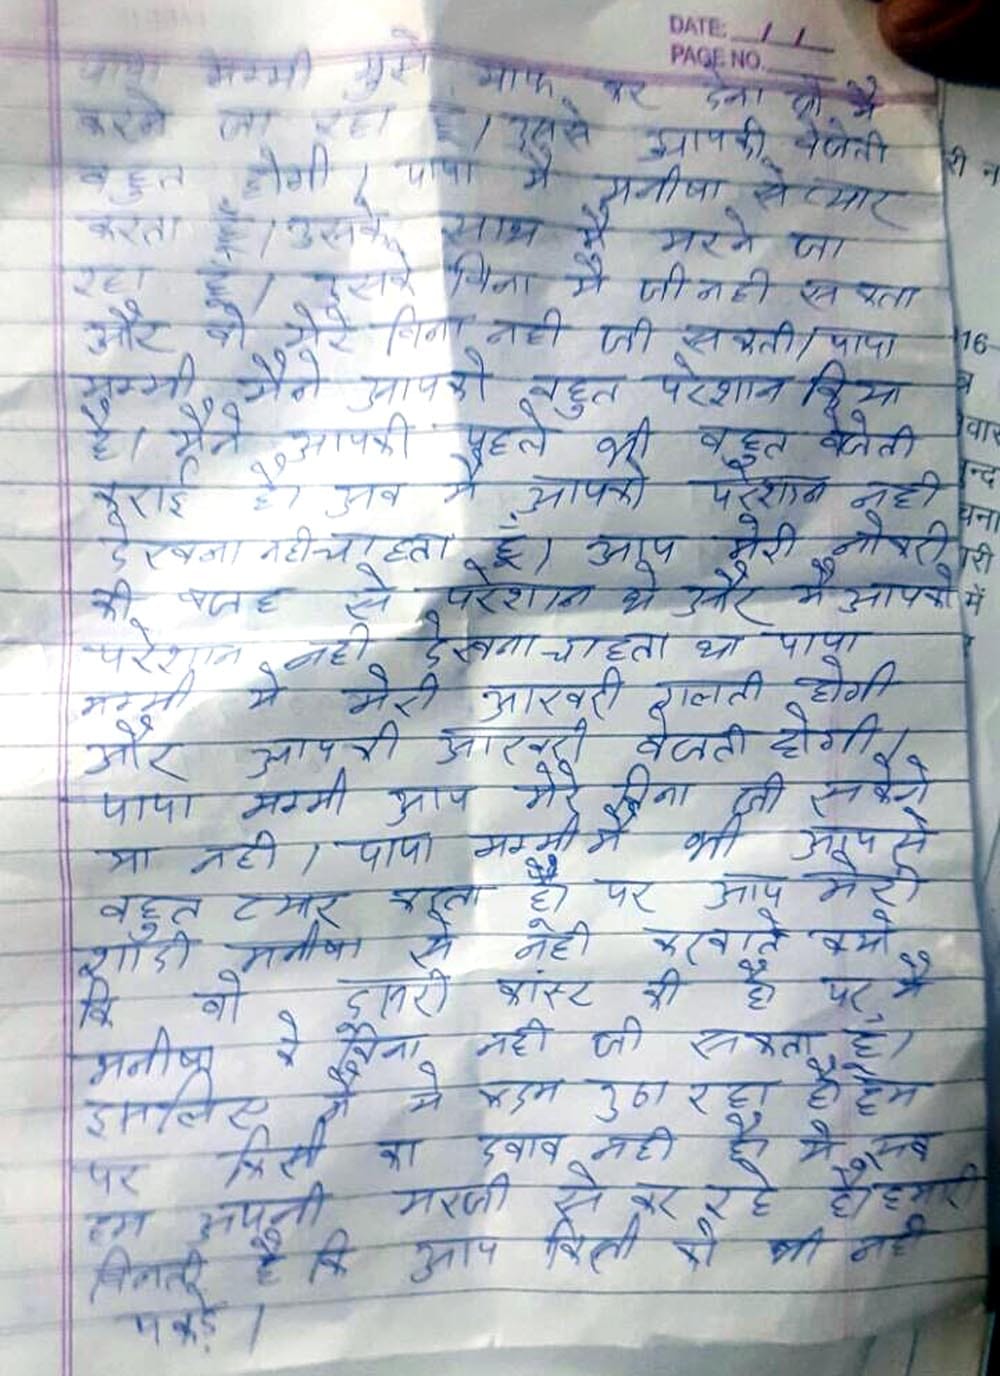 DATE: / /
PAGE NO.
पापा मम्मी मुझे माफ कर देना जो मै
करने जा रहा हूँ। उससे आपकी बेजती
बहुत होगी। पापा मै मनीषा से प्यार
करता हूँ। उसके साथ मै मरने जा
रहा हूँ। उसके बिना मै जी नही सकता
और वो मेरे बिना नही जी सकती। पापा
मम्मी मैने आपको बहुत परेशान किया
है। मैने आपकी पहले भी बहुत बेजेती
कराई है। अब मै आपको परेशान नही
देखना नही चाहता हूँ। आप मेरी नौकरी
की वजह से परेशान थे और मै आपको
परेशान नही देखना चाहता था पापा
मम्मी ये मेरी आखरी गलती होगी
और आपकी आखरी बेजती होगी।
पापा मम्मी आप मेरे बिना जी सकेगे
या नही। पापा मम्मी मै भी आप से
बहुत प्यार करता हूँ पर आप मेरी
शादी मनीषा से नही करवाते क्यो
कि वो दूसरी कास्ट की है पर मै
मनीषा के बिना नही जी सकता हूँ।
इसलिए मै ये कदम उठा रहा हूँ हम
पर किसी का दबाव नही है। ये सब
हम अपनी मरजी से कर रहे है। हमारी
विनती है कि आप किसी को भी नही
पकड़े।
री न
16
व
वार
न्द
चना
री
में